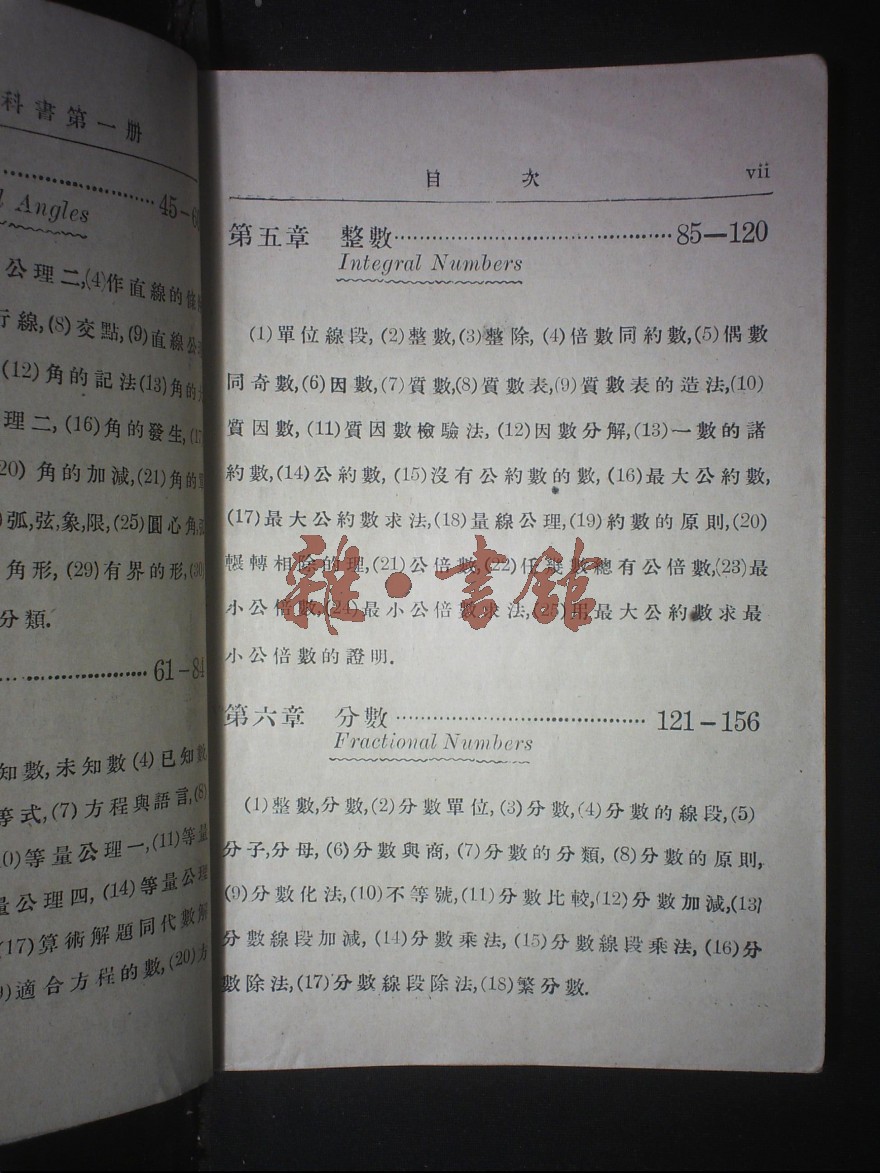 科書第一册
45-6
l Angles
公理二,(4)作直線的
行線,(8)交點,(9)直線公
(12)角的記法(13)角的
理二,(16)角的發生,(1
20)角的加減,(21)角的
弧,弦,象,限,(25)圓心角,
角形,(29)有界的形,(30
分類.
61-84
知數,未知數(4)已知數
等式,(7)方程與語言,(8)
0)等量公理一,(11)等量
量公理四,(14)等量公理
(17)算術解題同代數解
)適合方程的數,(20)方
目次 vii
第五章 整數 85—120
Integral Numbers
(1)單位線段,(2)整數,(3)整除,(4)倍數同約數,(5)偶數
同奇數,(6)因數,(7)質數,(8)質數表,(9)質數表的造法,(10)
質因數,(11)質因數檢驗法,(12)因數分解,(13)一數的諸
約數,(14)公約數,(15)沒有公約數的數,(16)最大公約數,
(17)最大公約數求法,(18)量線公理,(19)約數的原則,(20)
輾轉相除的理,(21)公倍數,(22)任幾數總有公倍數,(23)最
小公倍數,(24)最小公倍數求法,(25)用最大公約數求最
小公倍數的證明.
雜·書館
第六章 分數 121-156
Fractional Numbers
(1)整數,分數,(2)分數單位,(3)分數,(4)分數的線段,(5)
分子,分母,(6)分數與商,(7)分數的分類,(8)分數的原則,
(9)分數化法,(10)不等號,(11)分數比較,(12)分數加減,(13)
分數線段加減,(14)分數乘法,(15)分數線段乘法,(16)分
數除法,(17)分數線段除法,(18)繁分數.